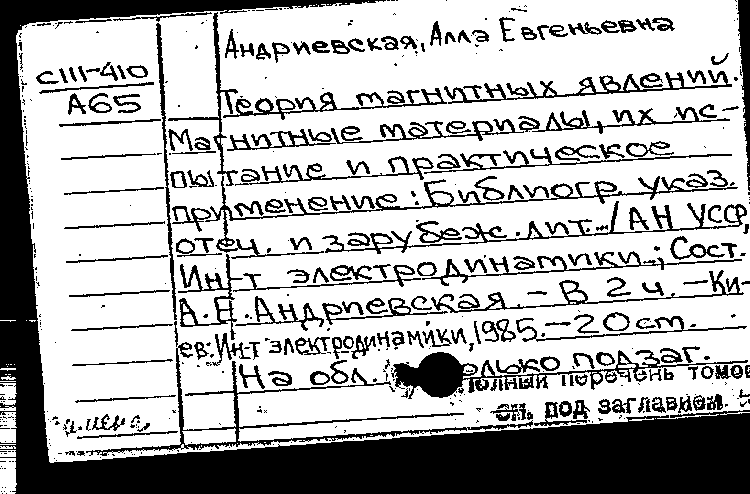 Андриевская, Алла Евгеньевна
СIII-410
А65
Теория магнитных явлений.
Магнитные материалы, их ис-
пытание и практическое
применение: Библиогр. указ.
отеч. и зарубеж. лит... / АН УССР,
Ин-т электродинамики..; Сост.
А.Е. Андриевская. - В 2 ч. - Ки-
ев: Ин-т электродинамики, 1985. - 20 cm.
На обл. только подзаг.
Полный перечень томов
см. под заглавием.